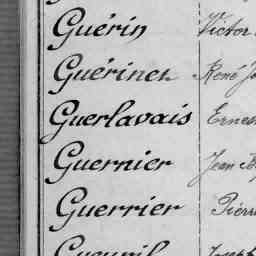 Guérin Victor
Guérinet René
Guerlavais Ernes
Guernier Jean
Guerrier Pierr
Gueunil Joseph